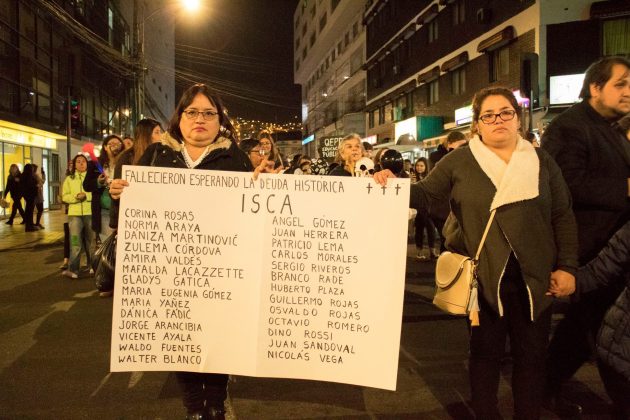 FALLECIERON ESPERANDO LA DEUDA HISTÓRICA †††
ISCA
CORINA ROSAS
NORMA ARAYA
DANIZA MARTINOVIĆ
ZULEMA CÓRDOVA
AMIRA VALDÉS
MAFALDA LACAZZETTE
GLADYS GATICA
MARIA EUGENIA GÓMEZ
MARIA YAÑEZ
DÁNICA FADIĆ
JORGE ARANCIBIA
VICENTE AYALA
WALDO FUENTES
WALTER BLANCO
ANGEL GÓMEZ
JUAN HERRERA
PATRICIO LEMA
CARLOS MORALES
SERGIO RIVEROS
BRANCO RADE
HUBERTO PLAZA
GUILLERMO ROJAS
OSVALDO ROJAS
OCTAVIO ROMERO
DINO ROSSI
JUAN SANDOVAL
NICOLÁS VEGA